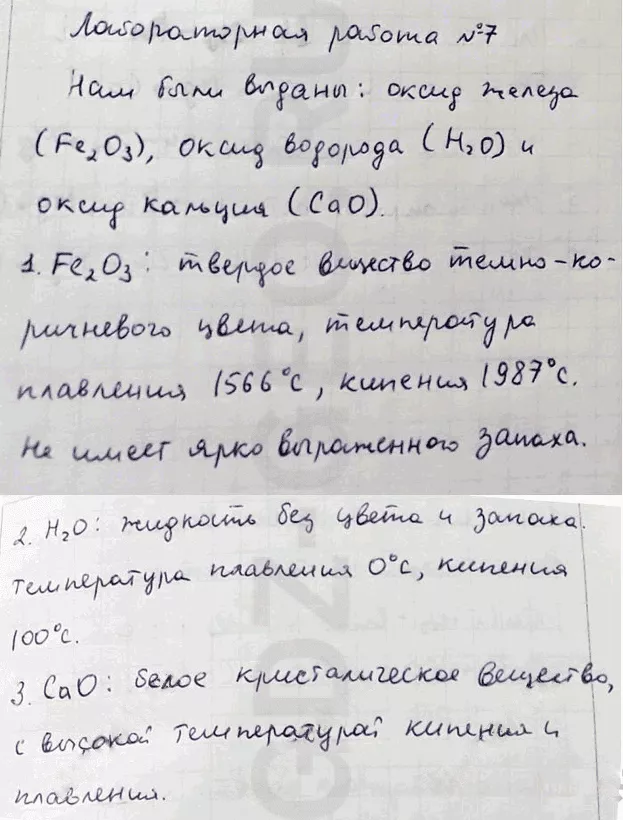 Лабораторная работа №7
Нам были выданы: оксид железа
(Fe₂O₃), оксид водорода (H₂O) и
оксид кальция (CaO).
1. Fe₂O₃: твердое вещество темно-ко-
ричневого цвета, температура
плавления 1566°С, кипения 1987°С.
Не имеет ярко выраженного запаха.
2. H₂O: жидкость без цвета и запаха.
температура плавления 0°С, кипения
100°С.
3. CaO: белое кристалическое вещество,
с высокой температурай кипения и
плавления.
GDZ-GEO.RU